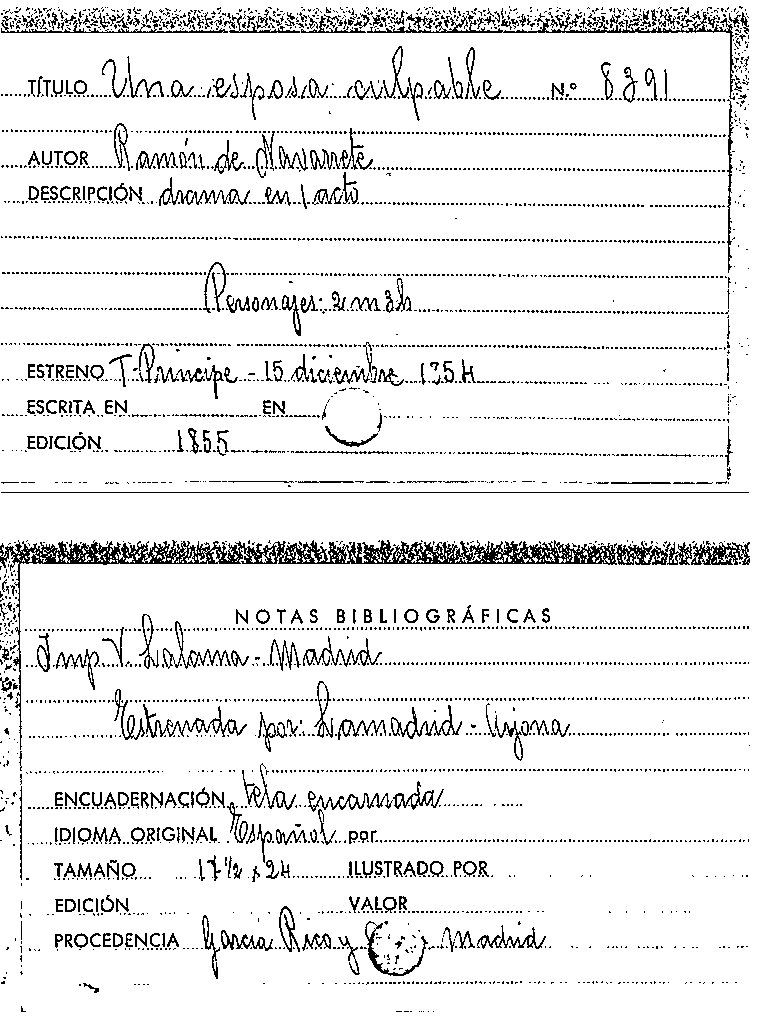 TÍTULO Una esposa culpable N.º 8391
AUTOR Ramón de Navarrete
DESCRIPCIÓN drama en 1 acto
Personajes: 2 m 3 h
ESTRENO T. Príncipe - 15 diciembre 1854
ESCRITA EN EN
EDICIÓN 1855
NOTAS BIBLIOGRÁFICAS
Imp. V. Lalama - Madrid
Estrenada por: Lamadrid - Arjona
ENCUADERNACIÓN tela encarnada
IDIOMA ORIGINAL Español por
TAMAÑO 17 1/2 x 24 ILUSTRADO POR
EDICIÓN VALOR
PROCEDENCIA García Rico y Madrid